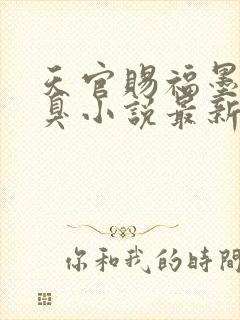 天官賜福墨
臭小說最新
你和我的時間